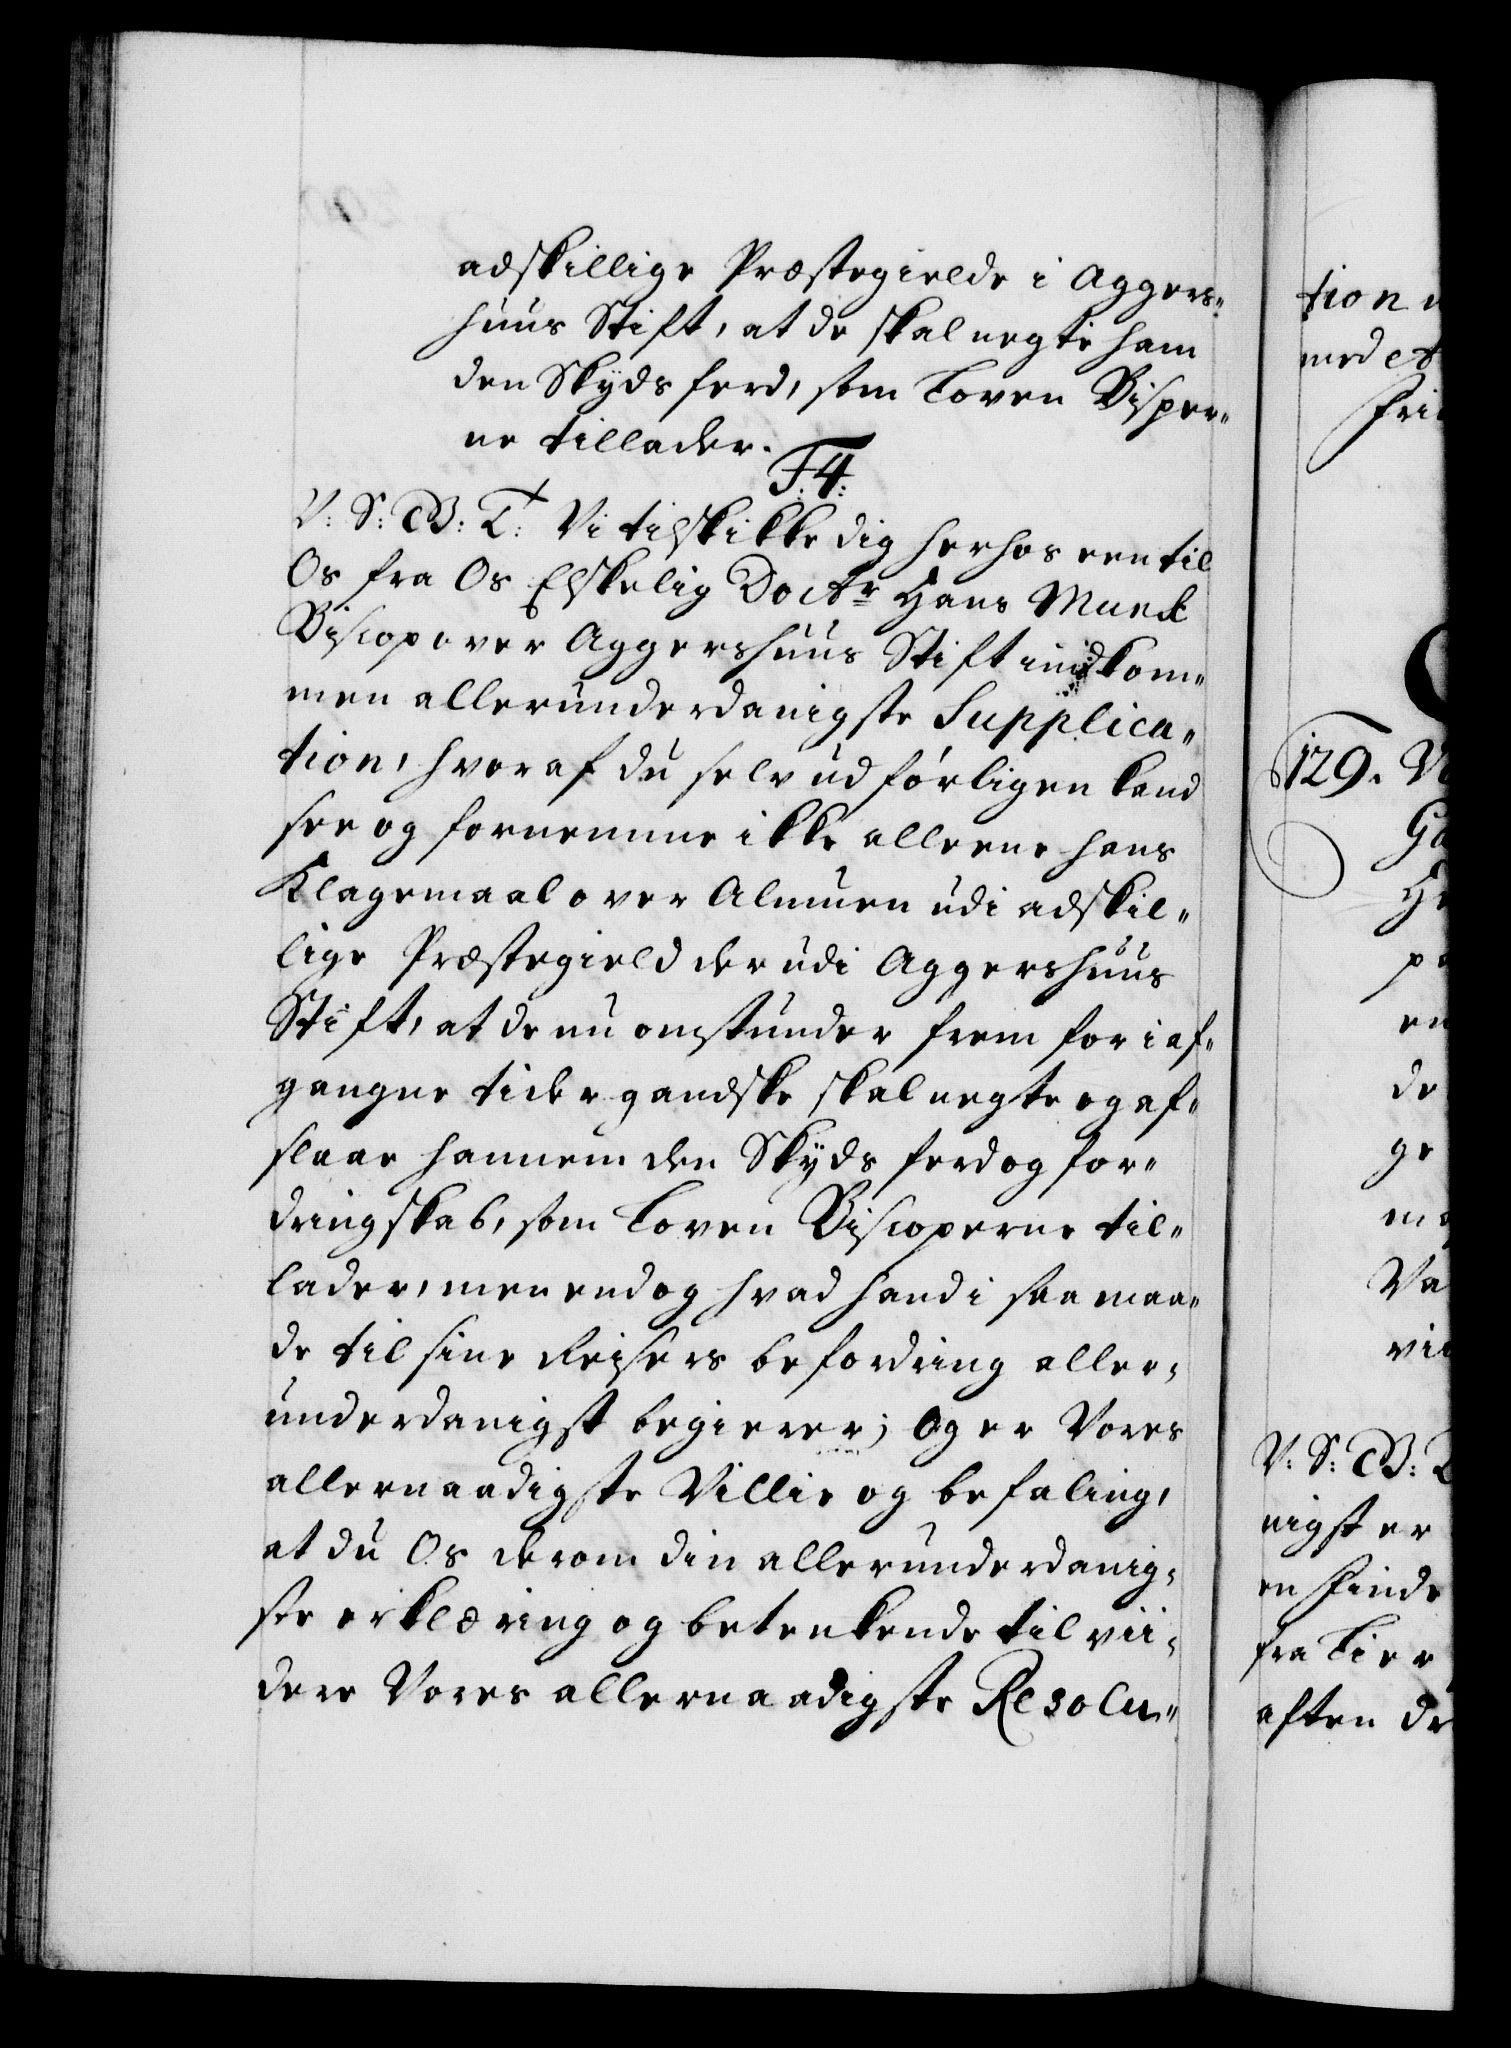 adskillige Præstegielde i Aggers„
huus Stift, at de skal negte ham
den Skyds ferd, som Loven Bisper„
ne tillader.
F:4:
V: S: B: T: Vi tilskikke dig herhos een til
Os fra Os Elskelig Doctr Hans Munk
Biscop over Aggershuus Stift indkom„
men allerunderdanigste Supplica„
tion, hvoraf du selv udførligen kand
see og fornemme ikke alleene hans
Klagemaal over Almuen udi adskil„
lige Præstegield der udi Aggershuus
Stift, at de nu omstunder frem for i af„
gangne tider gandske skal negte og af„
slaae hannem den Skyds ferd og for„
dringskab, som Loven Biscoperne til„
lader, men endog hvad hand i saa maa„
de til sine Reisers befordring aller„
underdanigst begierer; Og er Vores
allernaadigste Villie og befaling,
at du Os derom din allerunderdanig„
ste erklæring og betenkende til vii„
dere Vores allernaadigste Resolu„
tion
med et
129.
Va
V: S: B:
nigst er
en
fra
aften